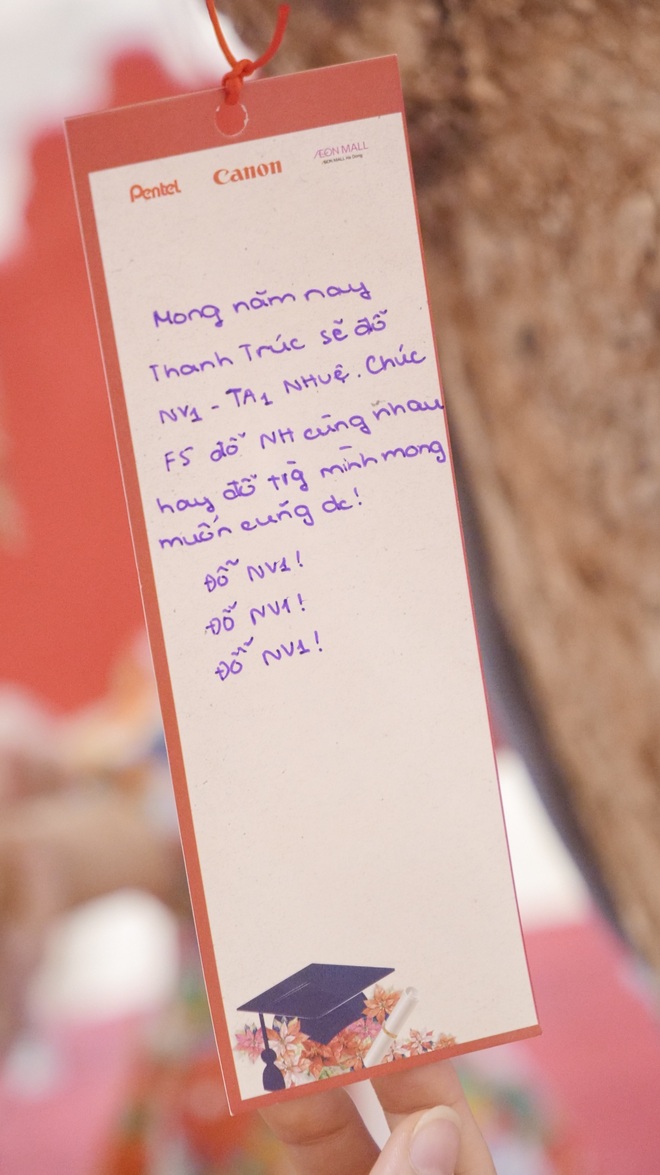 Pentel Canon ÆON MALL
ÆON MALL Hà Đông
Mong năm nay
Thanh Trúc sẽ đỗ
NV1 - TA1 NHuệ. Chúc
FS đỗ NH cùng nhau
hay đỗ trg mình mong
muốn cũng dc!
Đỗ NV1!
Đỗ NV1!
Đỗ NV1!